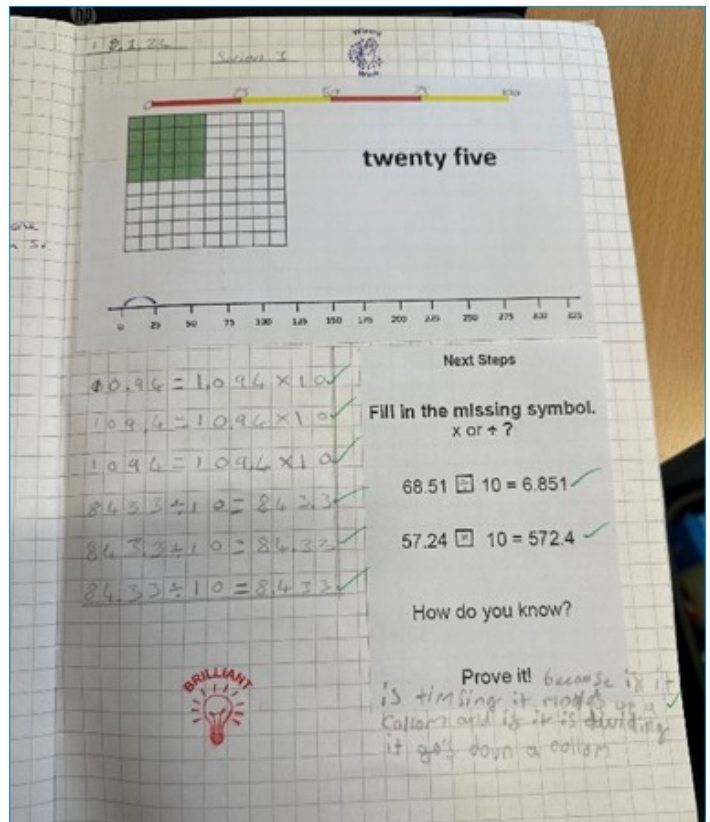 Session 1
0 25 50 75 100
twenty five
0 25 50 75 100 125 150 175 200 225 250 275 300 325
10.94 = 1.094 × 10
109.4 = 10.94 × 10
1094 = 109.4 × 10
8433 ÷ 10 = 843.3
843.3 ÷ 10 = 84.33
84.33 ÷ 10 = 8.433
BRILLIANT
Next Steps
Fill in the missing symbol.
x or ÷ ?
68.51 ÷ 10 = 6.851
57.24 × 10 = 572.4
How do you know?
Prove it! because if it
is timsing it moves up a
collom and if it is dividing
it go's down a collom